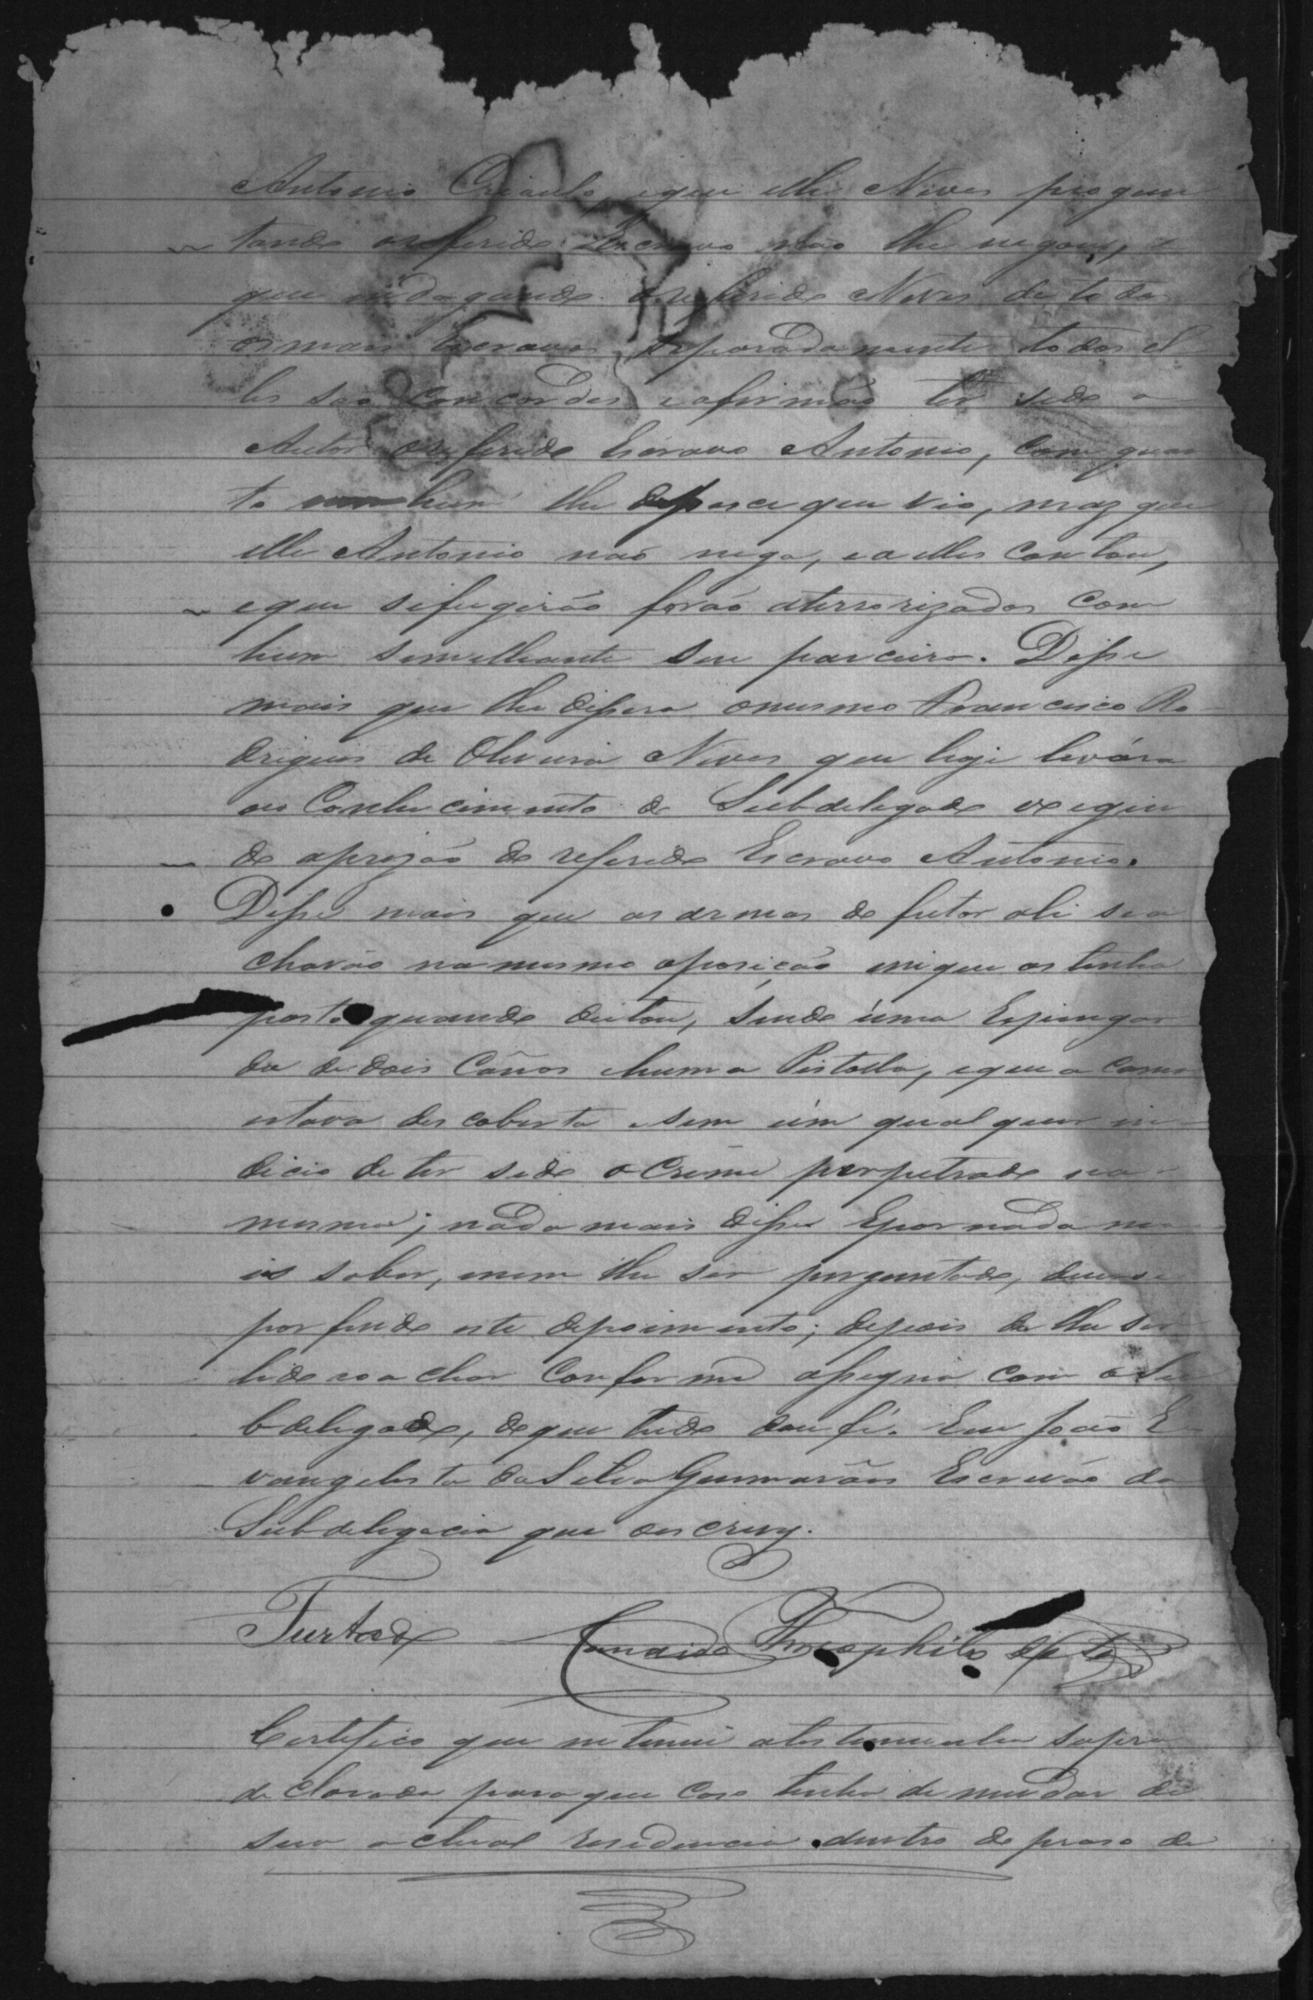 Antonio Crioulo, e que elle Neves pregun
tando ao referido Escravo não lhe negou, e
que indagando o referido Neves de todos
os mais Escravos separadamente todos el
les são Concordes e afirmão ter sido o
Autor o referido Escravo Antonio, com quan
to nenhum lhe dissece que vio, maz que
elle Antonio não nega, e a elles Contou,
e que se fugirão forão aterrorizados Com
hum semilhante seu parceiro. Disse
mais que lhe dissera o mesmo Francisco Ro
drigues de Oliveira Neves que hoje levára
ao Conhecimento do Subdelegado exigin
do a prizão do referido Escravo Antonio.
Disse mais que as armas do fetor ali se a
chavão na mesma a posição em que as tinha
posto quando deitou, sendo úma Espingar
da de dois Canos e huma Pistolla, e que a cama
estava descoberta e sem úm qual quer in
dicio de ter sido o Crime perpetrado na
mesma; nada mais disse E por nada ma
is saber, e nem lhe ser perguntado, deu-se
por findo este depoimento; depois de lhe ser
lido e o achar Conforme assigna com o Su
bdelegado, do que tudo dou fé. Eu João E
vangelista da Silva Guimarães Escrivão da
Subdelegacia que o escrevy.
Furtado Candido Theophilo
Certifico que intimei a testemunha supra
declarada para que caso tenha de mudar de
sua actual residencia dentro do praso de